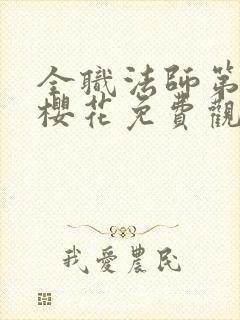 全職法師第
櫻花免費觀
我愛農民